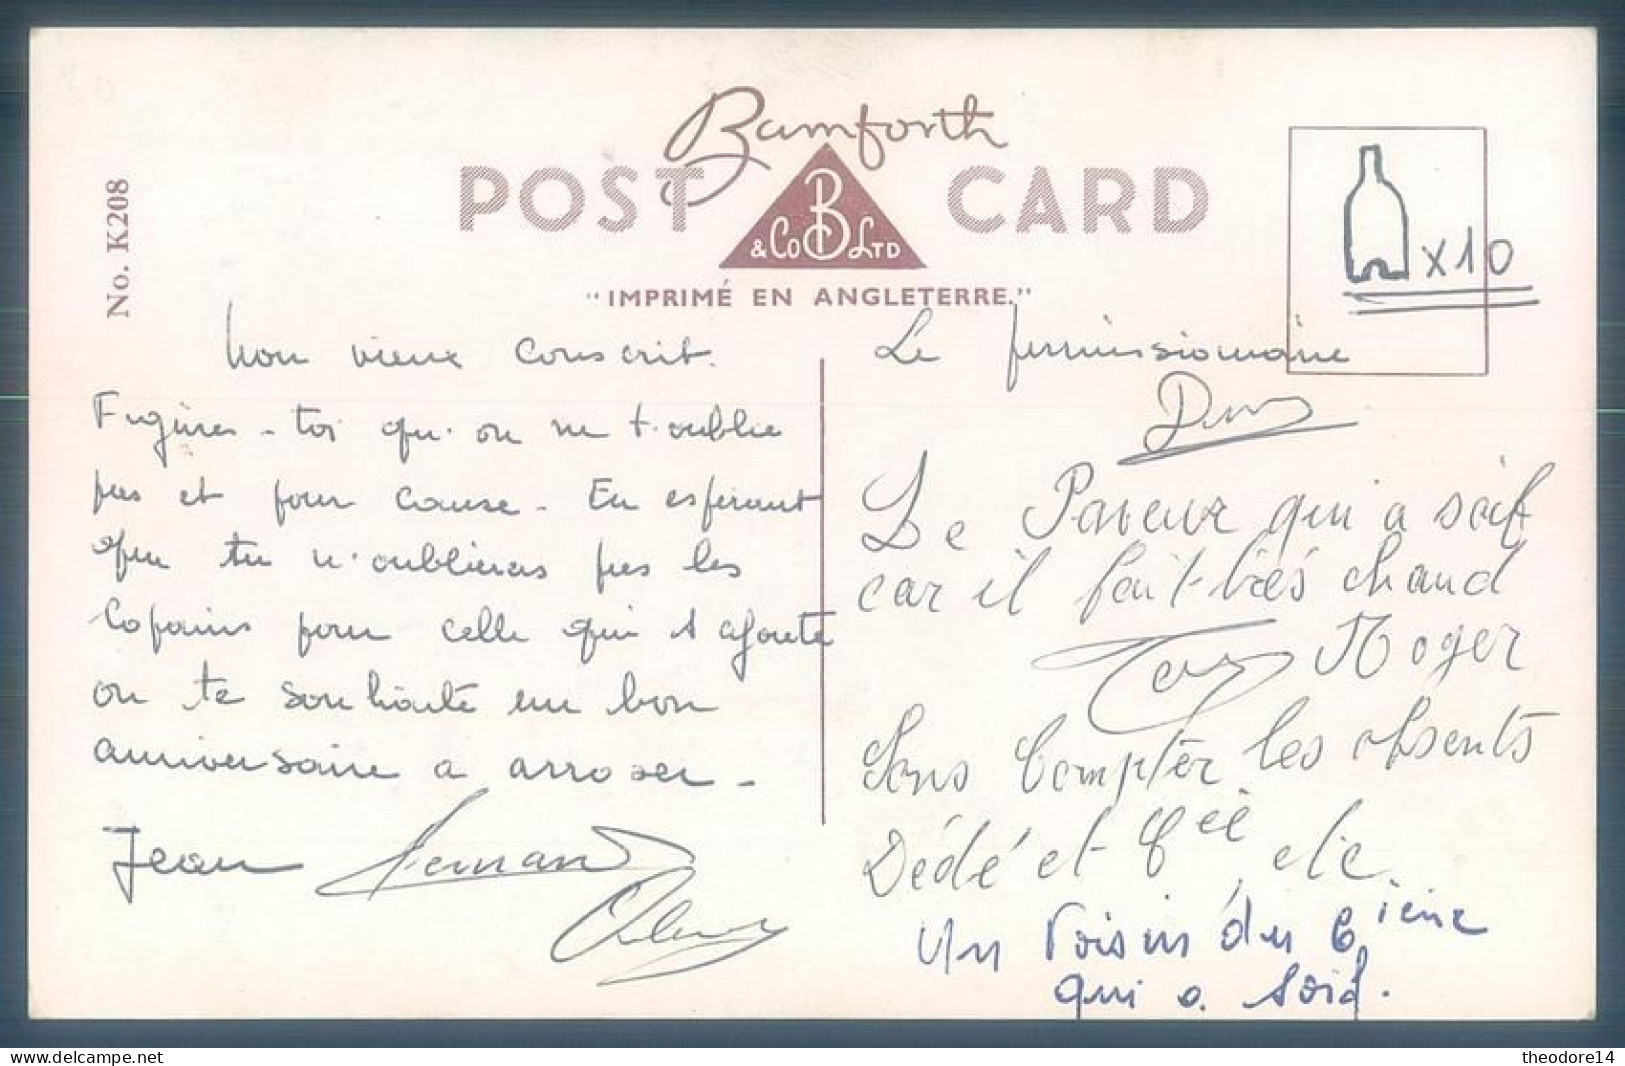 No. K208
Bamforth
POST CARD
& Co B LTD
"IMPRIMÉ EN ANGLETERRE."
x10
Mon vieux conscrit.
Figures-toi qu'on ne t'oublie
pas et pour cause - En espérant
que tu n'oublieras pas les
copains pour celle qui s'ajoute
on te souhaite un bon
anniversaire a arroser -
Jean Fernand
Le permissionnaire
Le Paveur qui a soif
car il fait très chaud
Roger
Sans Compter les absents
Dédé et Cie, etc
Un Voisin du 6ième
qui a soif.
delcampe.net
theodore14